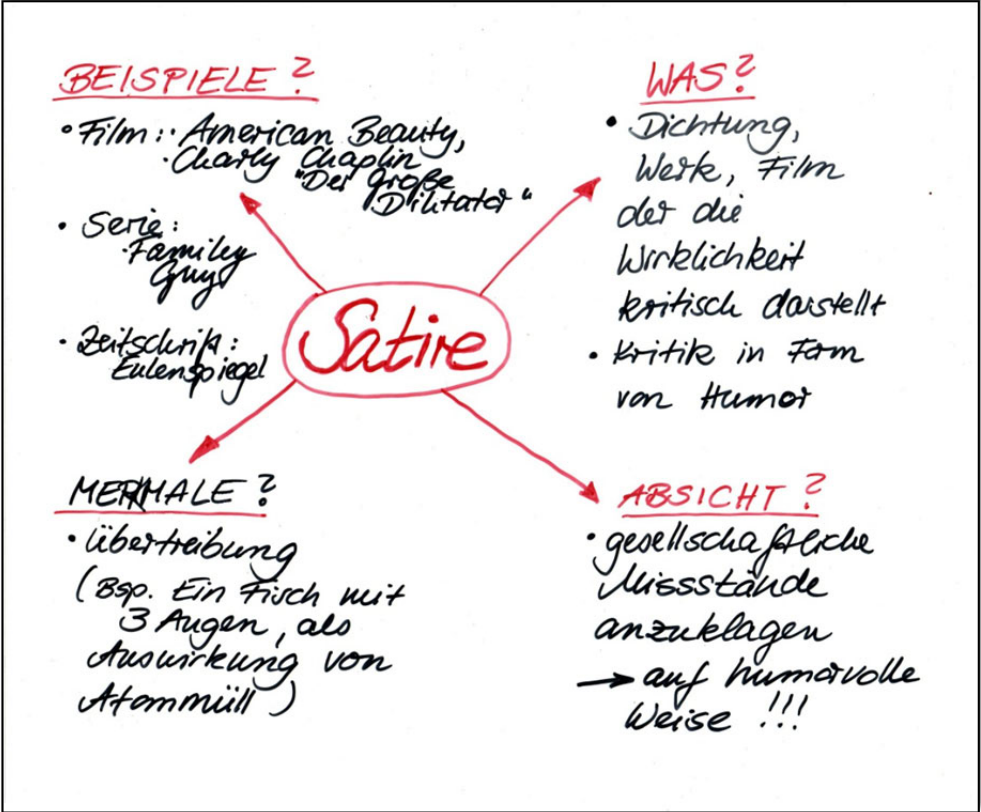 BEISPIELE?
• Film: · American Beauty,
· Charly Chaplin
"Der große
Diktator"
• Serie:
· Family
Guy
• Zeitschrift:
Eulenspiegel
WAS?
• Dichtung,
Werk, Film
der die
Wirklichkeit
kritisch darstellt
• Kritik in Form
von Humor
Satire
MERKMALE?
• Übertreibung
(Bsp. Ein Fisch mit
3 Augen, als
Auswirkung von
Atommüll)
ABSICHT?
• gesellschaftliche
Missstände
anzuklagen
→ auf humorvolle
Weise !!!